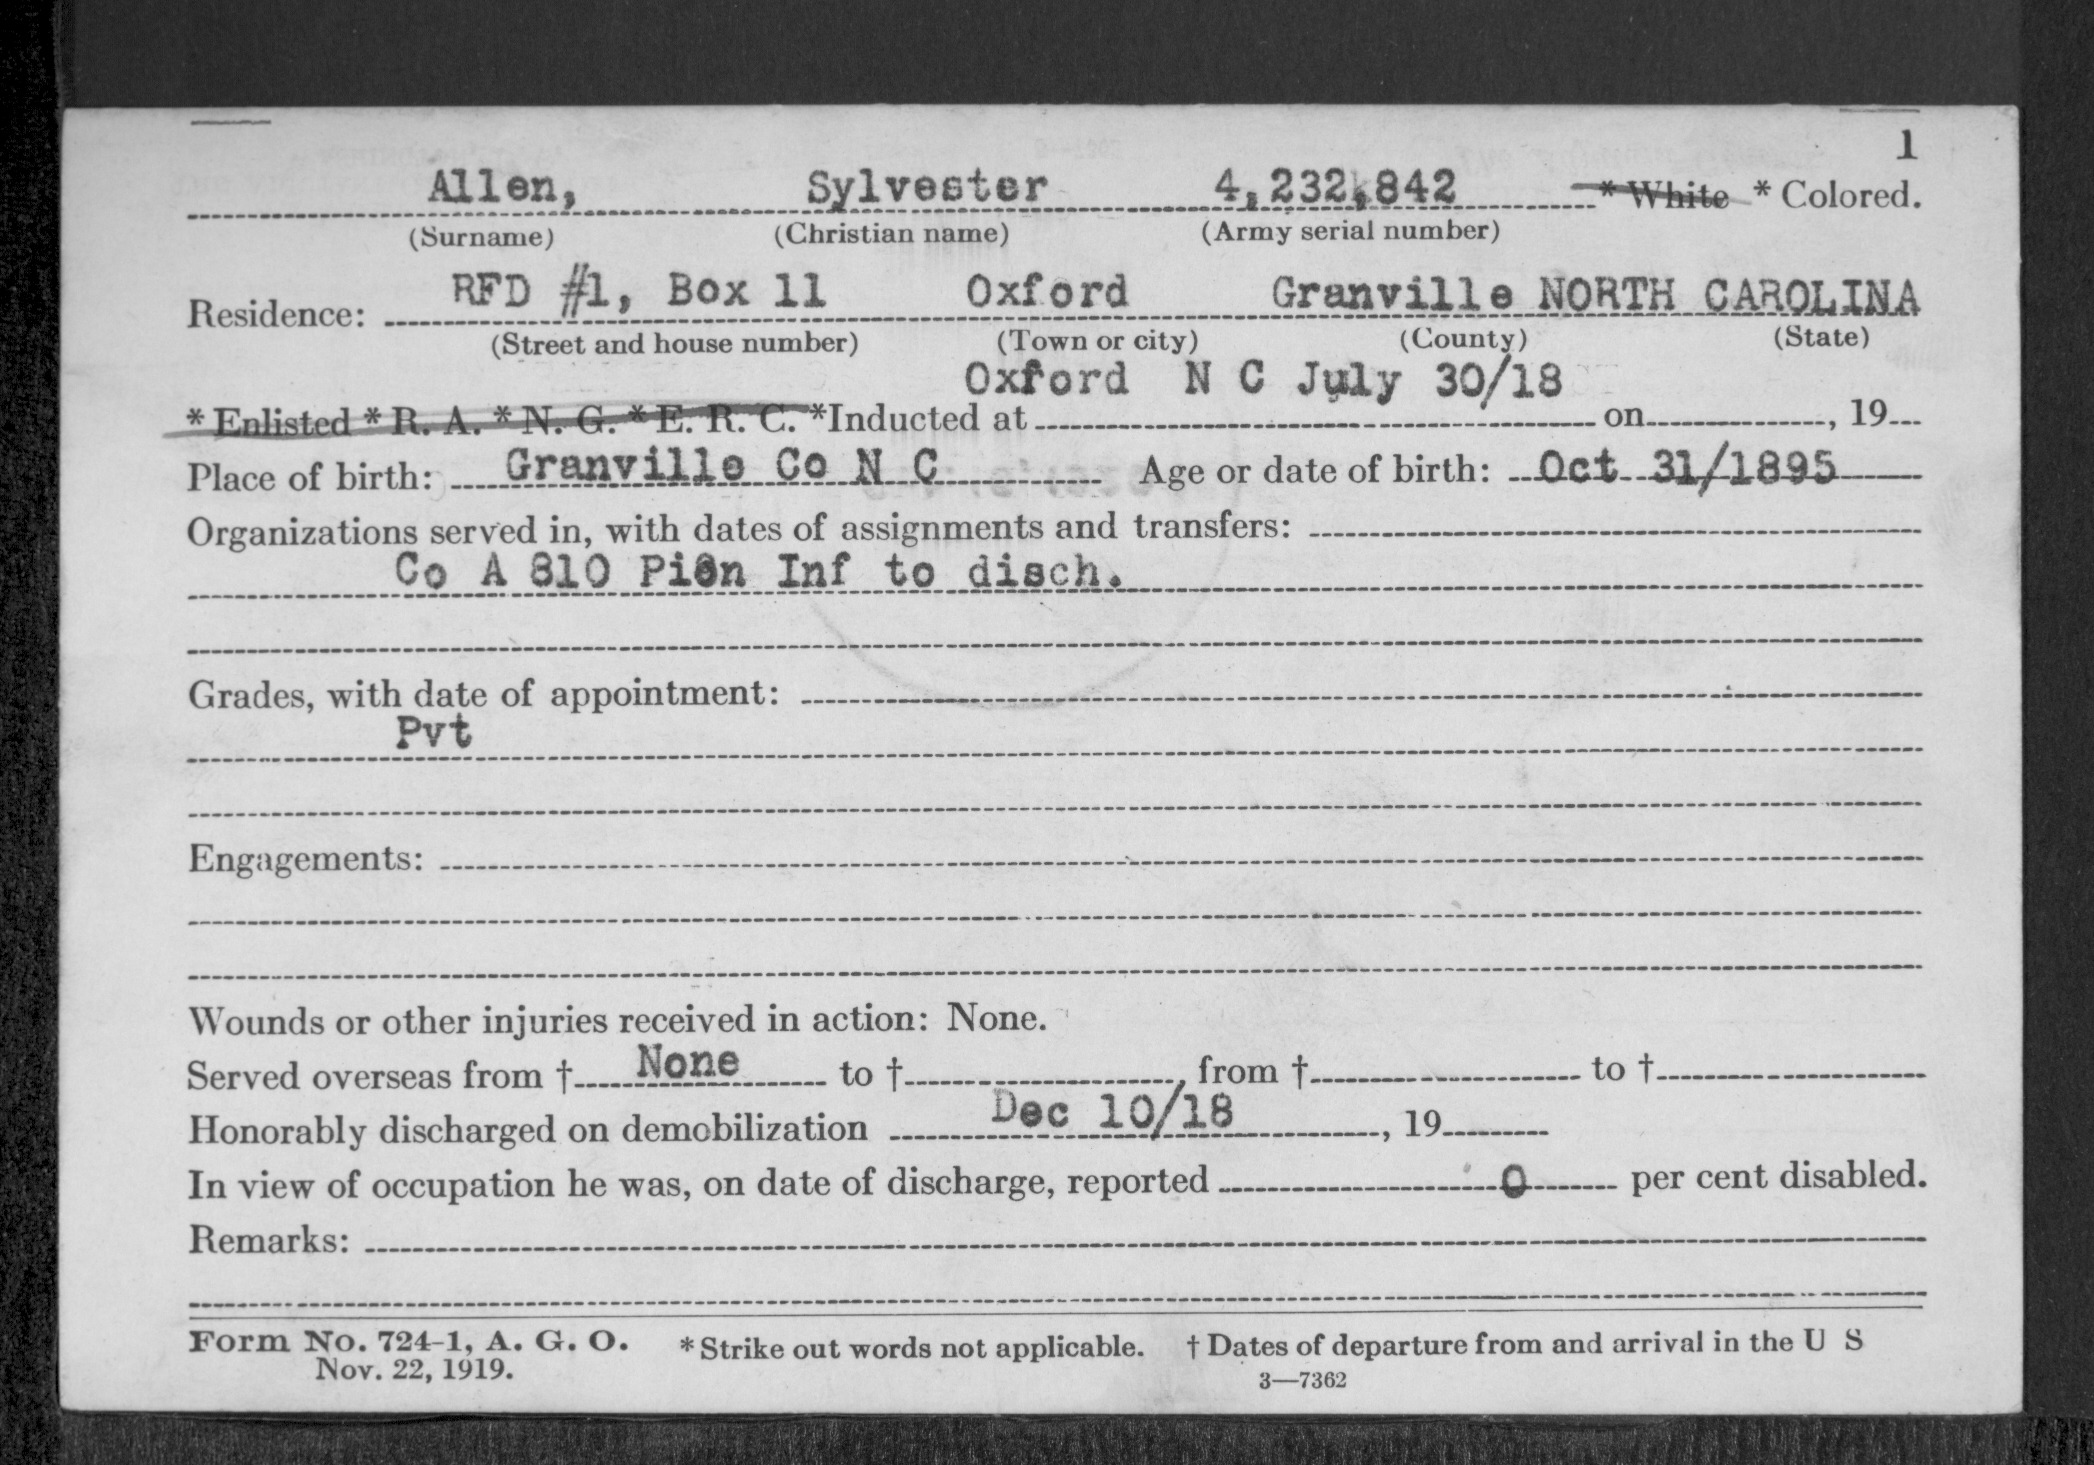 1
Allen, Sylvester 4,232,842 * White * Colored.
(Surname) (Christian name) (Army serial number)
RFD #1, Box 11 Oxford Granville NORTH CAROLINA
Residence:
(Street and house number) (Town or city) (County) (State)
Oxford N C July 30/18
* Enlisted * R. A. * N. G. * E. R. C. *Inducted at on , 19
Place of birth: Granville Co N C Age or date of birth: Oct 31/1895
Organizations served in, with dates of assignments and transfers:
Co A 810 Pion Inf to disch.
Grades, with date of appointment:
Pvt
Engagements:
Wounds or other injuries received in action: None.
Served overseas from † None to † , from † to †
Honorably discharged on demobilization Dec 10/18 , 19
In view of occupation he was, on date of discharge, reported 0 per cent disabled.
Remarks:
Form No. 724-1, A. G. O. * Strike out words not applicable. † Dates of departure from and arrival in the U S
Nov. 22, 1919. 3—7362